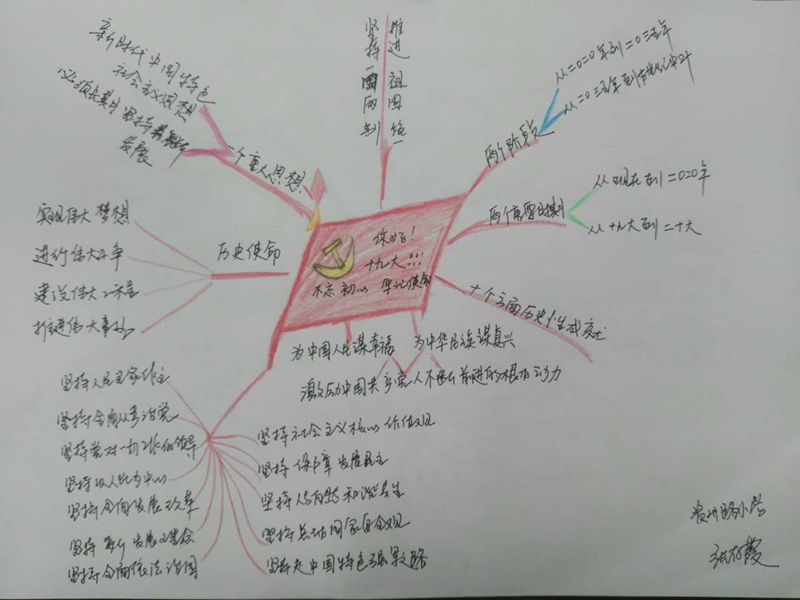 新时代中国特色
社会主义思想
必须长期坚持
发展
一个重大思想
坚持一国两制
推进祖国统一
从二0二0年到二0三五年
从二0三五年到
两个阶段
从现在到二0二0年
从十九大到二十大
两个
十个方面历史性成
你好！
十九大!!!
不忘初心 牢记使命
实现伟大梦想
进行伟大斗争
建设伟大工程
推进伟大事业
历史使命
为中国人民谋幸福
为中华民族谋复兴
激励中国共产党人不断前进的根本动力
坚持人民当家作主
坚持全面从严治党
坚持党对一切工作领导
坚持以人民为中心
坚持全面发展改革
坚持新发展理念
坚持全面依法治国
坚持社会主义核心价值观
坚持保障发展民生
坚持人与自然和谐共生
坚持总体国家安全观
坚持走中国特色强军之路
贵州路小学
霞